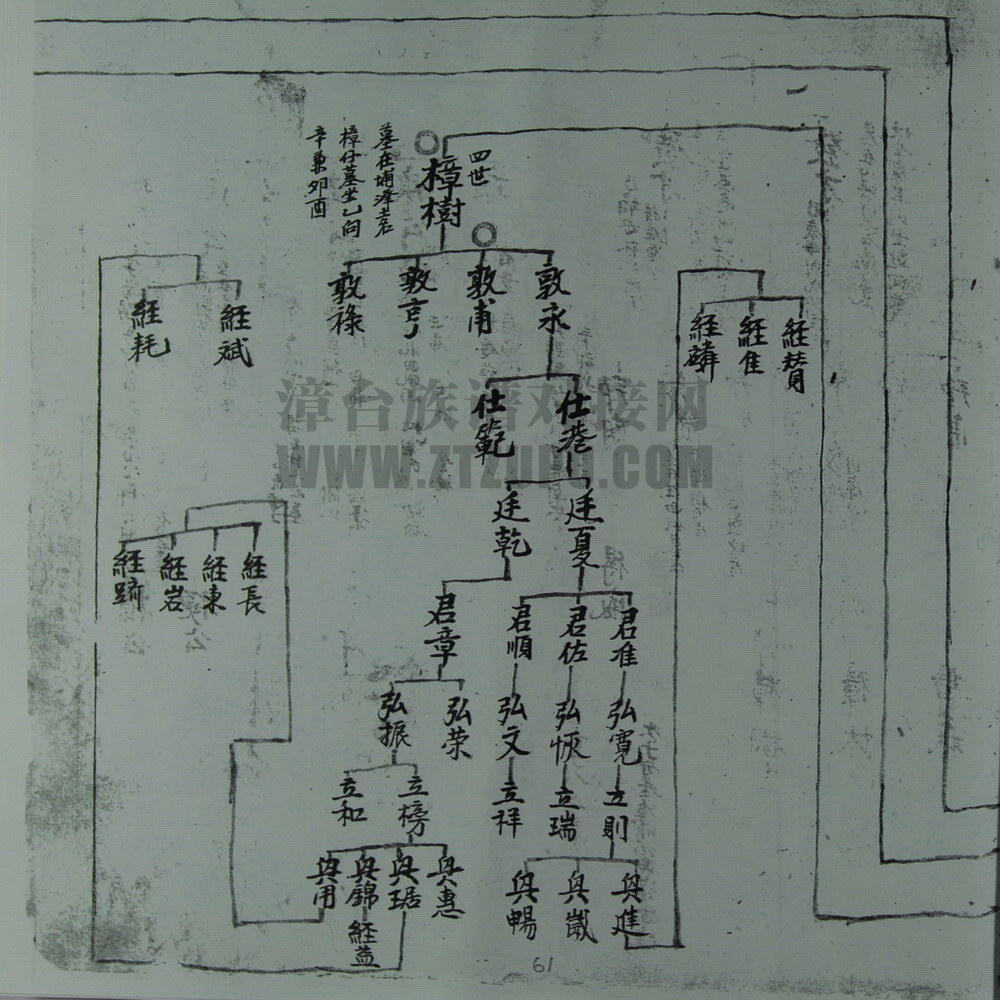 四世
樟樹
墓在埔潭岩
樟仔墓坐乙向
辛兼卯酉
敦永
敦甫
敦亨
敦祿
仕巷
仕範
廷夏
廷乾
君准
君佐
君順
君章
弘寬
弘恢
弘文
弘荣
弘振
立則
立瑞
立祥
立榜
立和
與進
與崴
與暢
與惠
與琚
與錦
與用
経益
経賛
経隹
経斌
経耗
経長
経東
経岩
経躋
漳台族谱对接网
WWW.ZTZUPU.COM
61